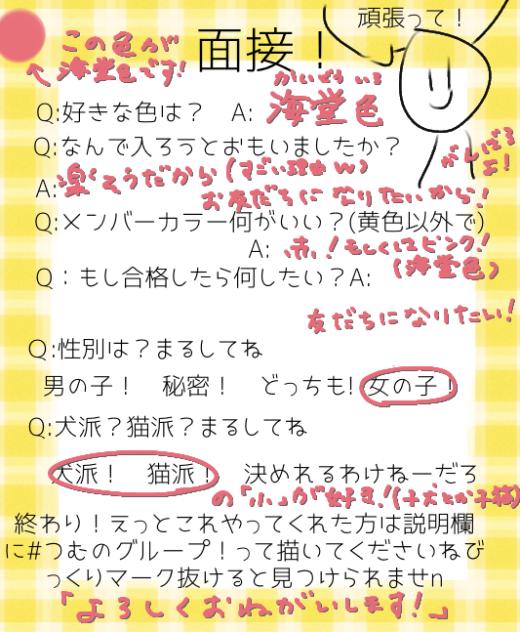 頑張って！
この色が
海堂色です!
面接！
かいどう いろ
Q:好きな色は？ A: 海堂色
Q:なんで入ろうとおもいましたか？
がんばる
よ!
A:楽しそうだから(すごい理由w)
お友だちになりたいから!
Q:メンバーカラー何がいい？(黄色以外で)
A: 赤！もしくはピンク!
(海堂色)
Q：もし合格したら何したい？A:
友だちになりたい!
Q:性別は？まるしてね
男の子！ 秘密！ どっちも! 女の子！
Q:犬派？猫派？まるしてね
犬派！ 猫派！ 決めれるわけねーだろ
の「小」が好き!(子犬とか子猫)
終わり！えっとこれやってくれた方は説明欄
に#つむのグループ！って描いてくださいねび
っくりマーク抜けると見つけられませn
「よろしくおねがいします!」